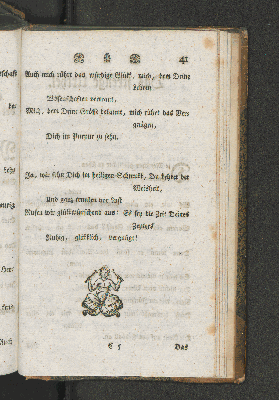 41
Auch mich rühret das würdige Glük, mich, dem Deine
Lehren
Wissenschaften vertraut,
Mich, dem Deine Größe bekannt, mich rühret das Ver-
gnügen,
Dich im Purpur zu sehn.
Ja, wir sehn Dich im heiligen Schmuk, Du Lehrer der
Weisheit,
Und ganz trunken vor Lust
Rufen wir glükwünschend aus: Es sey die Zeit Deines
Zepters
Ruhig, glüklich, vergnügt!
C 5
Das